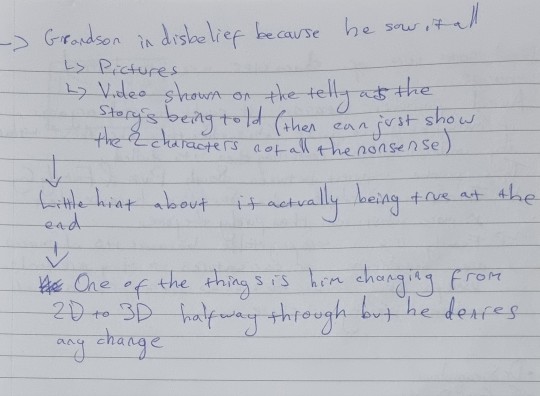 -> Grandson in disbelief because he saw it all
↳ Pictures
↳ Video shown on the telly as the
story's being told (then can just show
the 2 characters not all the nonsense)
↓
Little hint about it actually being true at the
end
↓
One of the things is him changing from
2D to 3D halfway through but he denies
any change